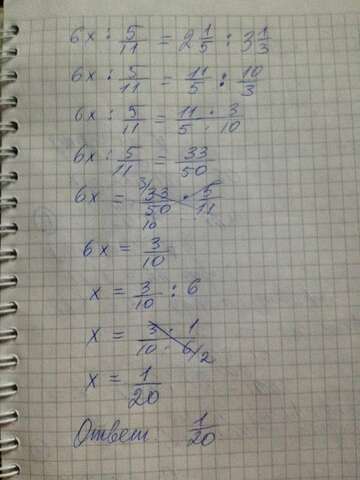 6x : 5/11 = 2 1/5 : 3 1/3
6x : 5/11 = 11/5 : 10/3
6x : 5/11 = 11 · 3/5 · 10
6x : 5/11 = 33/50
6x = 33/50 · 5/11 3 10
6x = 3/10
x = 3/10 : 6
x = 3 · 1/10 · 6 2
x = 1/20
Ответ: 1/20